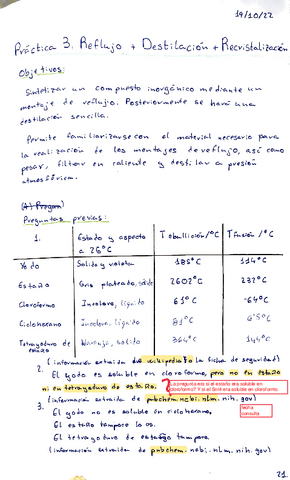 19/10/22
Práctica 3. Reflujo + Destilación + Recristalización
Objetivos:
Sintetizar un compuesto inorgánico mediante un
montaje de reflujo. Posteriormente se hará una
destilación sencilla.
Permite familiarizarse con el material necesario para
la realización de los montajes de reflujo, así como
pesar, filtrar en caliente y destilar a presión
atmosférica.
Preguntas previas:
1. Estado y aspecto a 26°C T ebullición/°C T fusión/°C
Yodo Solido y violeta 185°C 114°C
Estaño Gris plateado, sólido 2602°C 232°C
Cloroformo Incoloro, líquido 61°C -64°C
Ciclohexano Incoloro, líquido 81°C 6'5°C
Tetrayoduro de estaño Naranja, solido 364°C 144°C
2. (información extraida de wikipedia y o la ficha de seguridad)
El yodo es soluble en cloroformo, pero no en estaño
ni en tetrayoduro de estaño.
La pregunta era si el estaño era soluble en
cloroformo? Y si el SnI4 era soluble en cloroformo.
(información extraida de pubchem.ncbi.nlm.nih.gov)
3. El yodo no es soluble en ciclohexano,
fecha
consulta
El estaño tampoco lo es.
El tetrayoduro de estaño tampoco.
(información extraida de pubchem.ncbi.nlm.nih.gov)
21